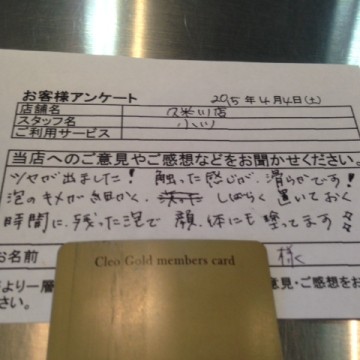 お客様アンケート 2015年4月4日(土)
店舗名 久米川店
スタッフ名 小川
ご利用サービス
当店へのご意見やご感想などをお聞かせください。
ツヤが出ました! 触った感じが、滑らかです!
泡のキメが細かく、しばらく置いておく
時間に、残った泡で顔、体にも塗ってます
お名前 様
Cleo Gold members card
より一層
意見・ご感想をお
さい。